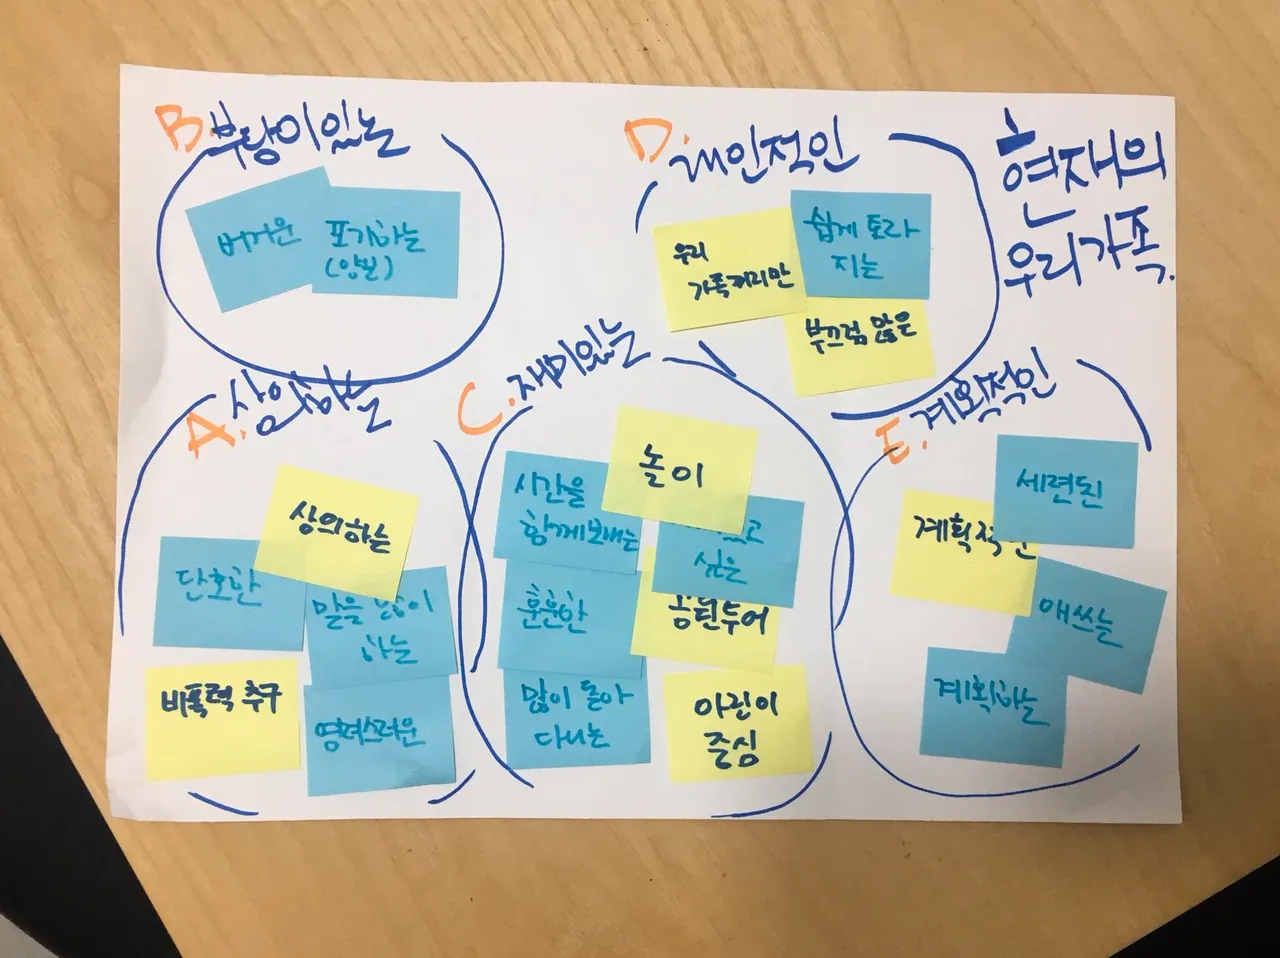 현재의
우리가족.
B. 부랑이있는
버거운
포기하는
(양보)
D. 개인적인
우리
가족끼리만
쉽게 토라
지는
부끄럼 많은
A. 상의하는
상의하는
단호한
말을 많이
하는
비폭력 추구
염려스러운
C. 재미있는
놀이
시간을
함께보내는
있고
싶은
훈훈한
공원투어
많이 돌아
다니는
어린이
중심
E. 계획적인
세련된
계획적인
애쓰는
계획하는